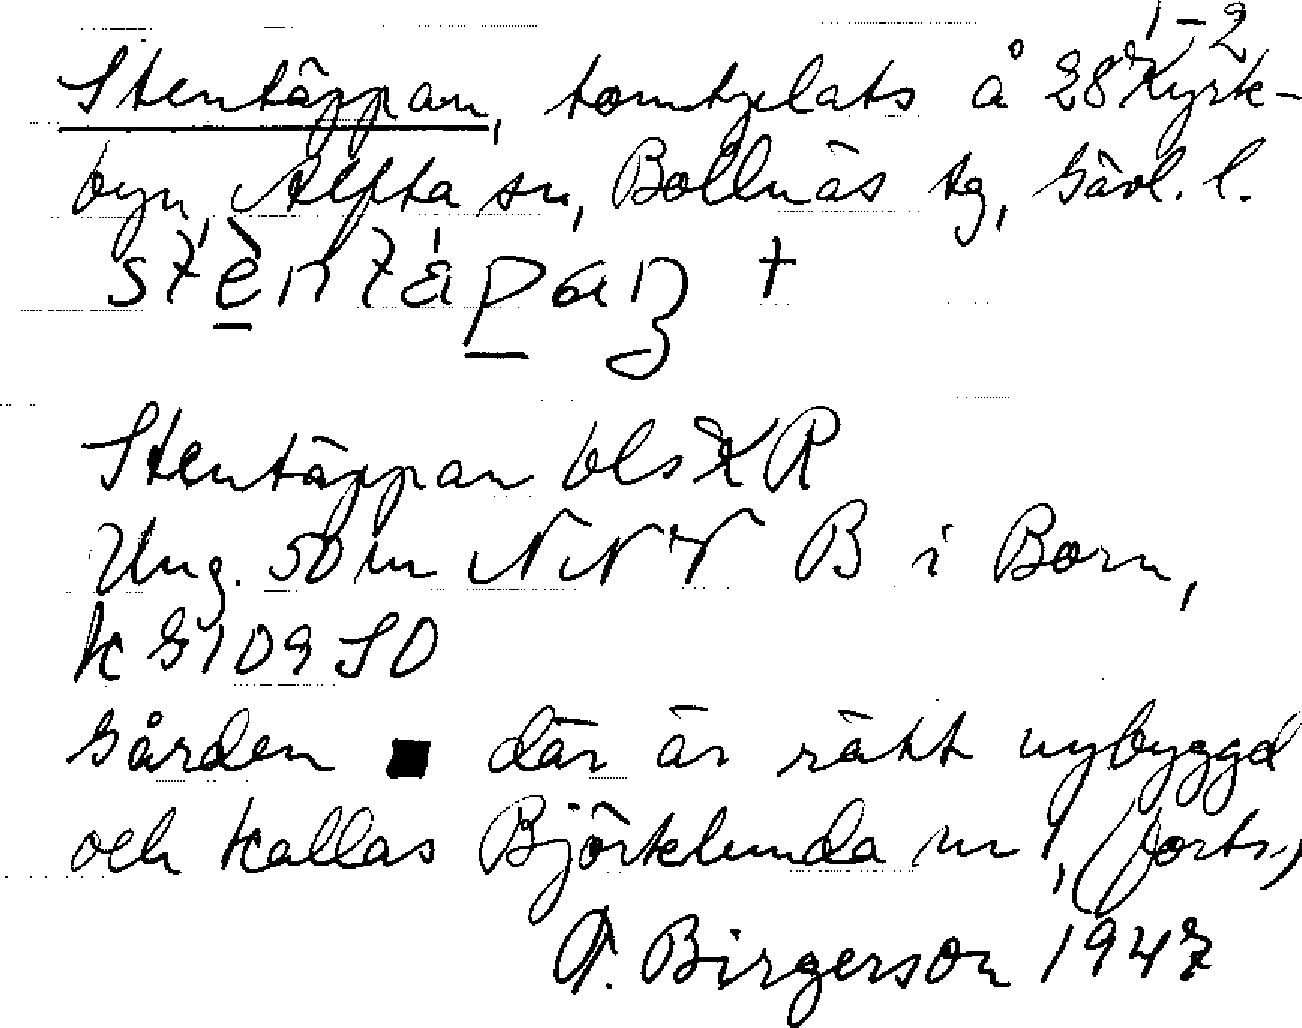 1-2
Stentäppan, tomtplats å 28 Kyrk-
byn, Alfta sn, Bollnäs tg, Gävl. l.
Stentäppan bls KR
Ung. 50 m NNV B i Born,
k G 109 SO
Gården där är rätt nybyggd
och kallas Björklunda nr 1, (forts.)
A. Birgerson 1947